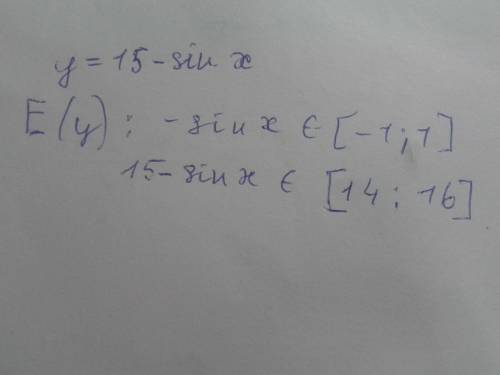 y = 15 - sin x
E(y) : - sin x ∈ [-1; 1]
15 - sin x ∈ [14 ; 16]